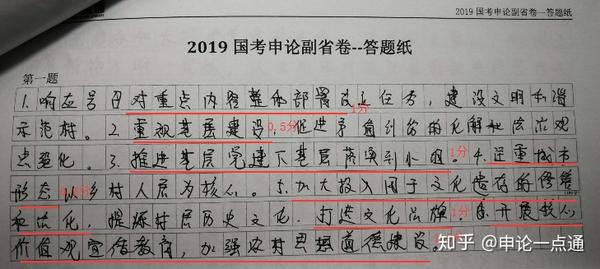 2019国考申论副省卷--答题纸
2019国考申论副省卷--答题纸
第一题
1.响应号召对重点内容整体部署设立任务,建设文明和谐
1分
示范村。2.重视基层建设,促进矛盾纠纷的化解和法治观
0.5分
念强化。3.推进基层党建下基层落实到小组。4.注重城市
1分
形态以乡村人居为核心。5.加大投入用于文化遗存的修缮
和,提炼村居历史文化,打造文化品牌。6.开展核心
1分
价值观宣传教育,加强农村思想道德建设。
知乎 @申论一点通